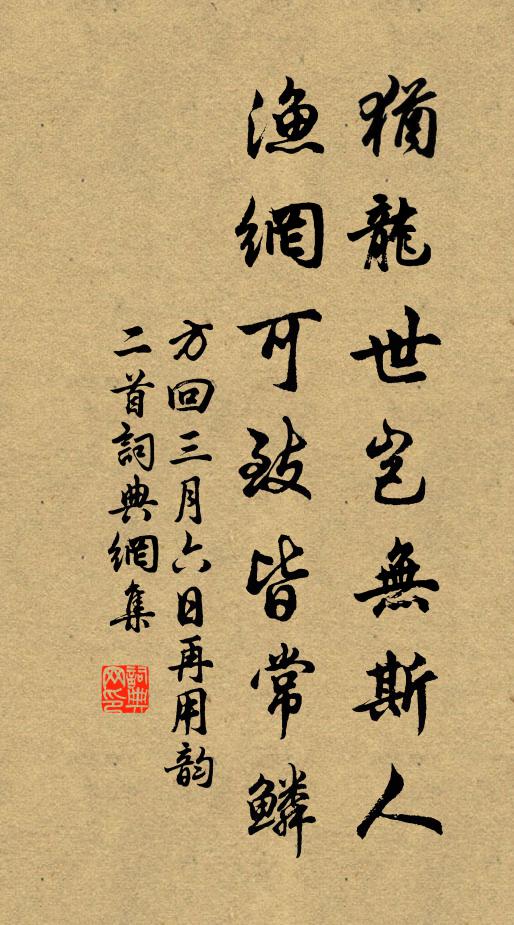 猶龍世豈無斯人
漁網可致皆常鱗
方回三月六日再用韵
二首詞典網集
詞典
网印